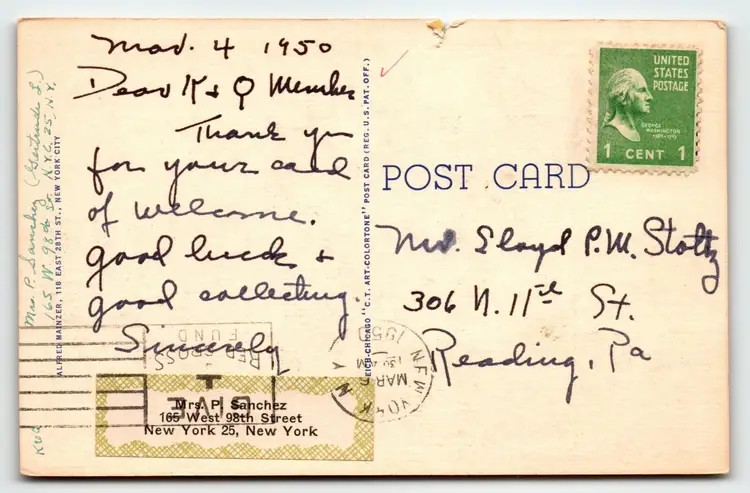 Mar. 4 1950
Dear K & Q Member
Thank you
for your card
of welcome.
good luck &
good collecting.
Sincerely
Mrs. P. Sanchez
165 West 98th Street
New York 25, New York
Mrs. P. Sanchez (Gertrude L.)
165 W. 98th St. N.Y.C. 25 N.Y.
ALFRED MAINZER, 118 EAST 28TH ST., NEW YORK CITY
"C.T. ART-COLORTONE" POST CARD (REG. U.S. PAT. OFF.)
POST CARD
UNITED
STATES
POSTAGE
GEORGE
WASHINGTON
1789-1797
1 CENT 1
Mr. Lloyd P.M. Stoltz
306 N. 11th St.
Reading, Pa
NEW YORK
MAR
1950
GIVE
RED CROSS
FUND